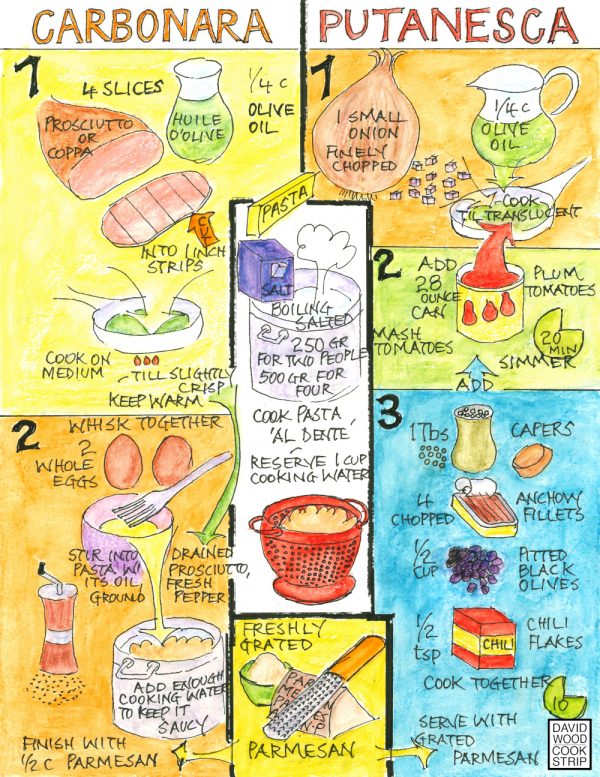 CARBONARA
PUTANESCA
1
4 SLICES
PROSCIUTTO
OR
COPPA
HUILE
D'OLIVE
1/4 C
OLIVE
OIL
CUT
INTO 1 INCH
STRIPS
COOK ON
MEDIUM
TILL SLIGHTLY
CRISP
KEEP WARM
2
WHISK TOGETHER
2
WHOLE
EGGS
STIR INTO
PASTA W/
ITS OIL
GROUND
DRAINED
PROSCIUTTO,
FRESH
PEPPER
ADD ENOUGH
COOKING WATER
TO KEEP IT
SAUCY
FINISH WITH
1/2 C PARMESAN
PASTA
SALT
BOILING
SALTED
250 GR
FOR TWO PEOPLE
500 GR FOR
FOUR
COOK PASTA
'AL DENTE'
RESERVE 1 CUP
COOKING WATER
FRESHLY
GRATED
PARMESAN
1
1 SMALL
ONION
FINELY
CHOPPED
1/4 C
OLIVE
OIL
COOK
TIL TRANSLUCENT
2
ADD
28
OUNCE
CAN
PLUM
TOMATOES
MASH
TOMATOES
20
MIN
SIMMER
ADD
3
1 Tbs
CAPERS
4
CHOPPED
ANCHOVY
FILLETS
1/2
CUP
PITTED
BLACK
OLIVES
1/2
tsp
CHILI
CHILI
FLAKES
COOK TOGETHER
10
SERVE WITH
GRATED
PARMESAN
DAVID
WOOD
COOK
STRIP